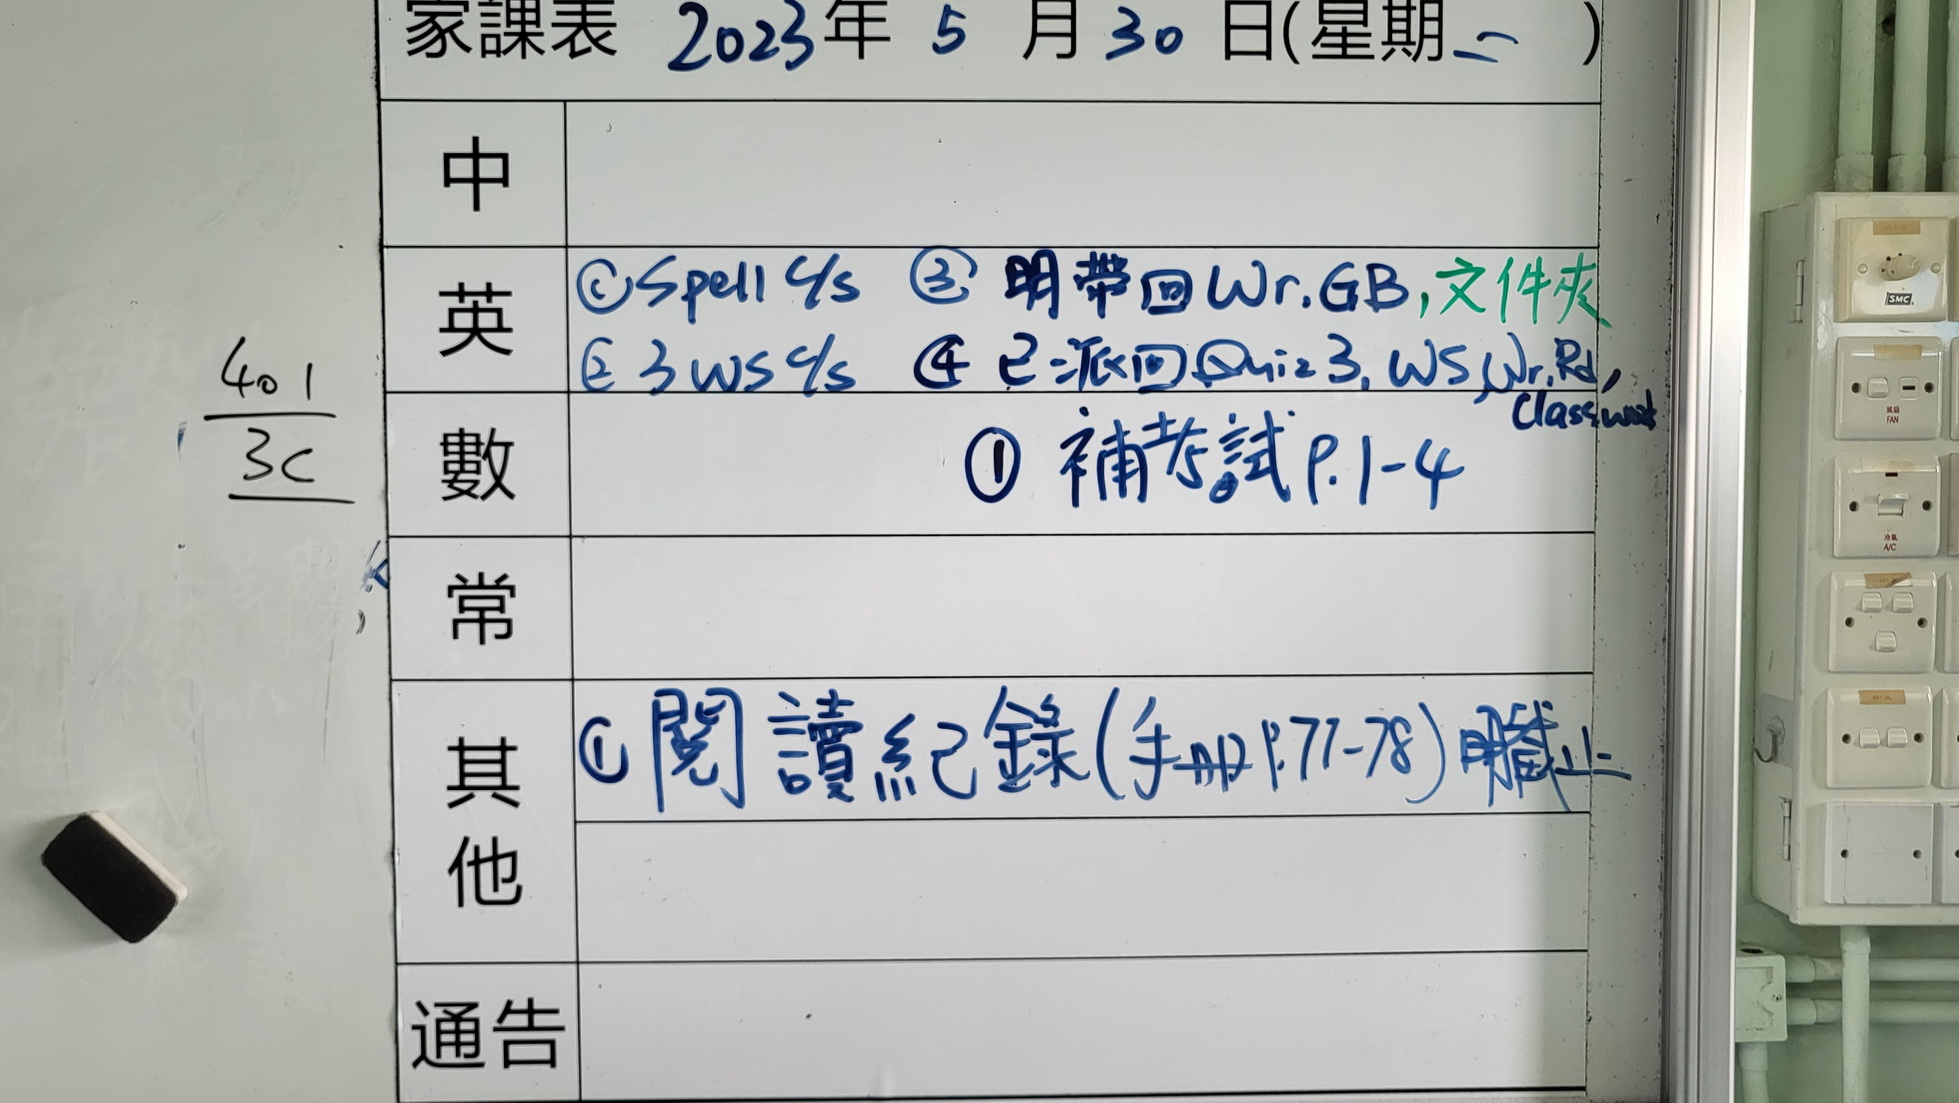 家課表 2023年 5 月 30 日(星期二 )
中
英
① Spell c/s ③ 明帶回 Wr. GB, 文件夾
② 3 WS c/s ④ 已派回 Quiz 3, WS, Wr. Rd,
Classwork
401
3C
數
① 補考試 P.1-4
常
其他
① 閱讀紀錄(手冊 P.77-78) 明截止
通告
SMC
風扇
FAN
冷氣
A/C